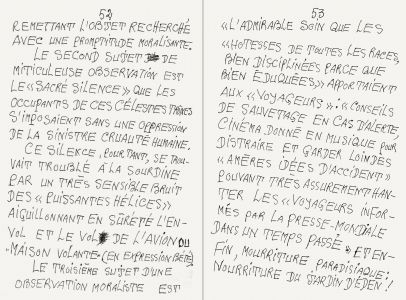 52
REMETTANT L'OBJET RECHERCHÉ
AVEC UNE PROMPTITUDE MORALISANTE.
LE SECOND SUJET DE
MÉTICULEUSE OBSERVATION EST
LE «SACRÉ SILENCE» QUE LES
OCCUPANTS DE CES CÉLESTES TRAINS
S'IMPOSAIENT SANS UNE OPPRESSION
DE LA SINISTRE CRUAUTÉ HUMAINE.
CE SILENCE, POURTANT, SE TROU-
VAIT TROUBLÉ À LA SOURDINE
PAR UN TRÈS SENSIBLE BRUIT
DES «PUISSANTES HÉLICES,»
AIGUILLONNANT EN SÛRETÉ L'EN-
VOL ET LE VOL DE L'AVION OU
"MAISON VOLANTE" (EN EXPRESSION BÉTÉ).
LE TROISIÈME SUJET D'UNE
OBSERVATION MORALISTE EST
53
«L'ADMIRABLE SOIN QUE LES
«HOTESSES DE TOUTES LES RACES,
BIEN DISCIPLINÉES PARCE QUE
BIEN ÉDUQUÉES,» APPORTAIENT
AUX «VOYAGEURS» : «CONSEILS
DE SAUVETAGE EN CAS D'ALERTE,
CINÉMA DONNÉ EN MUSIQUE POUR
DISTRAIRE ET GARDER LOIN DES
«AMÈRES IDÉES D'ACCIDENT»
POUVANT TRÈS ASSUREMENT HAN-
TER LES «VOYAGEURS INFOR-
MÉS PAR LA PRESSE-MONDIALE
DANS UN TEMPS PASSÉ» ET EN-
FIN, MOURRITURE PARADISIAQUE:
NOURRITURE DU JARDIN D'ÉDEN!